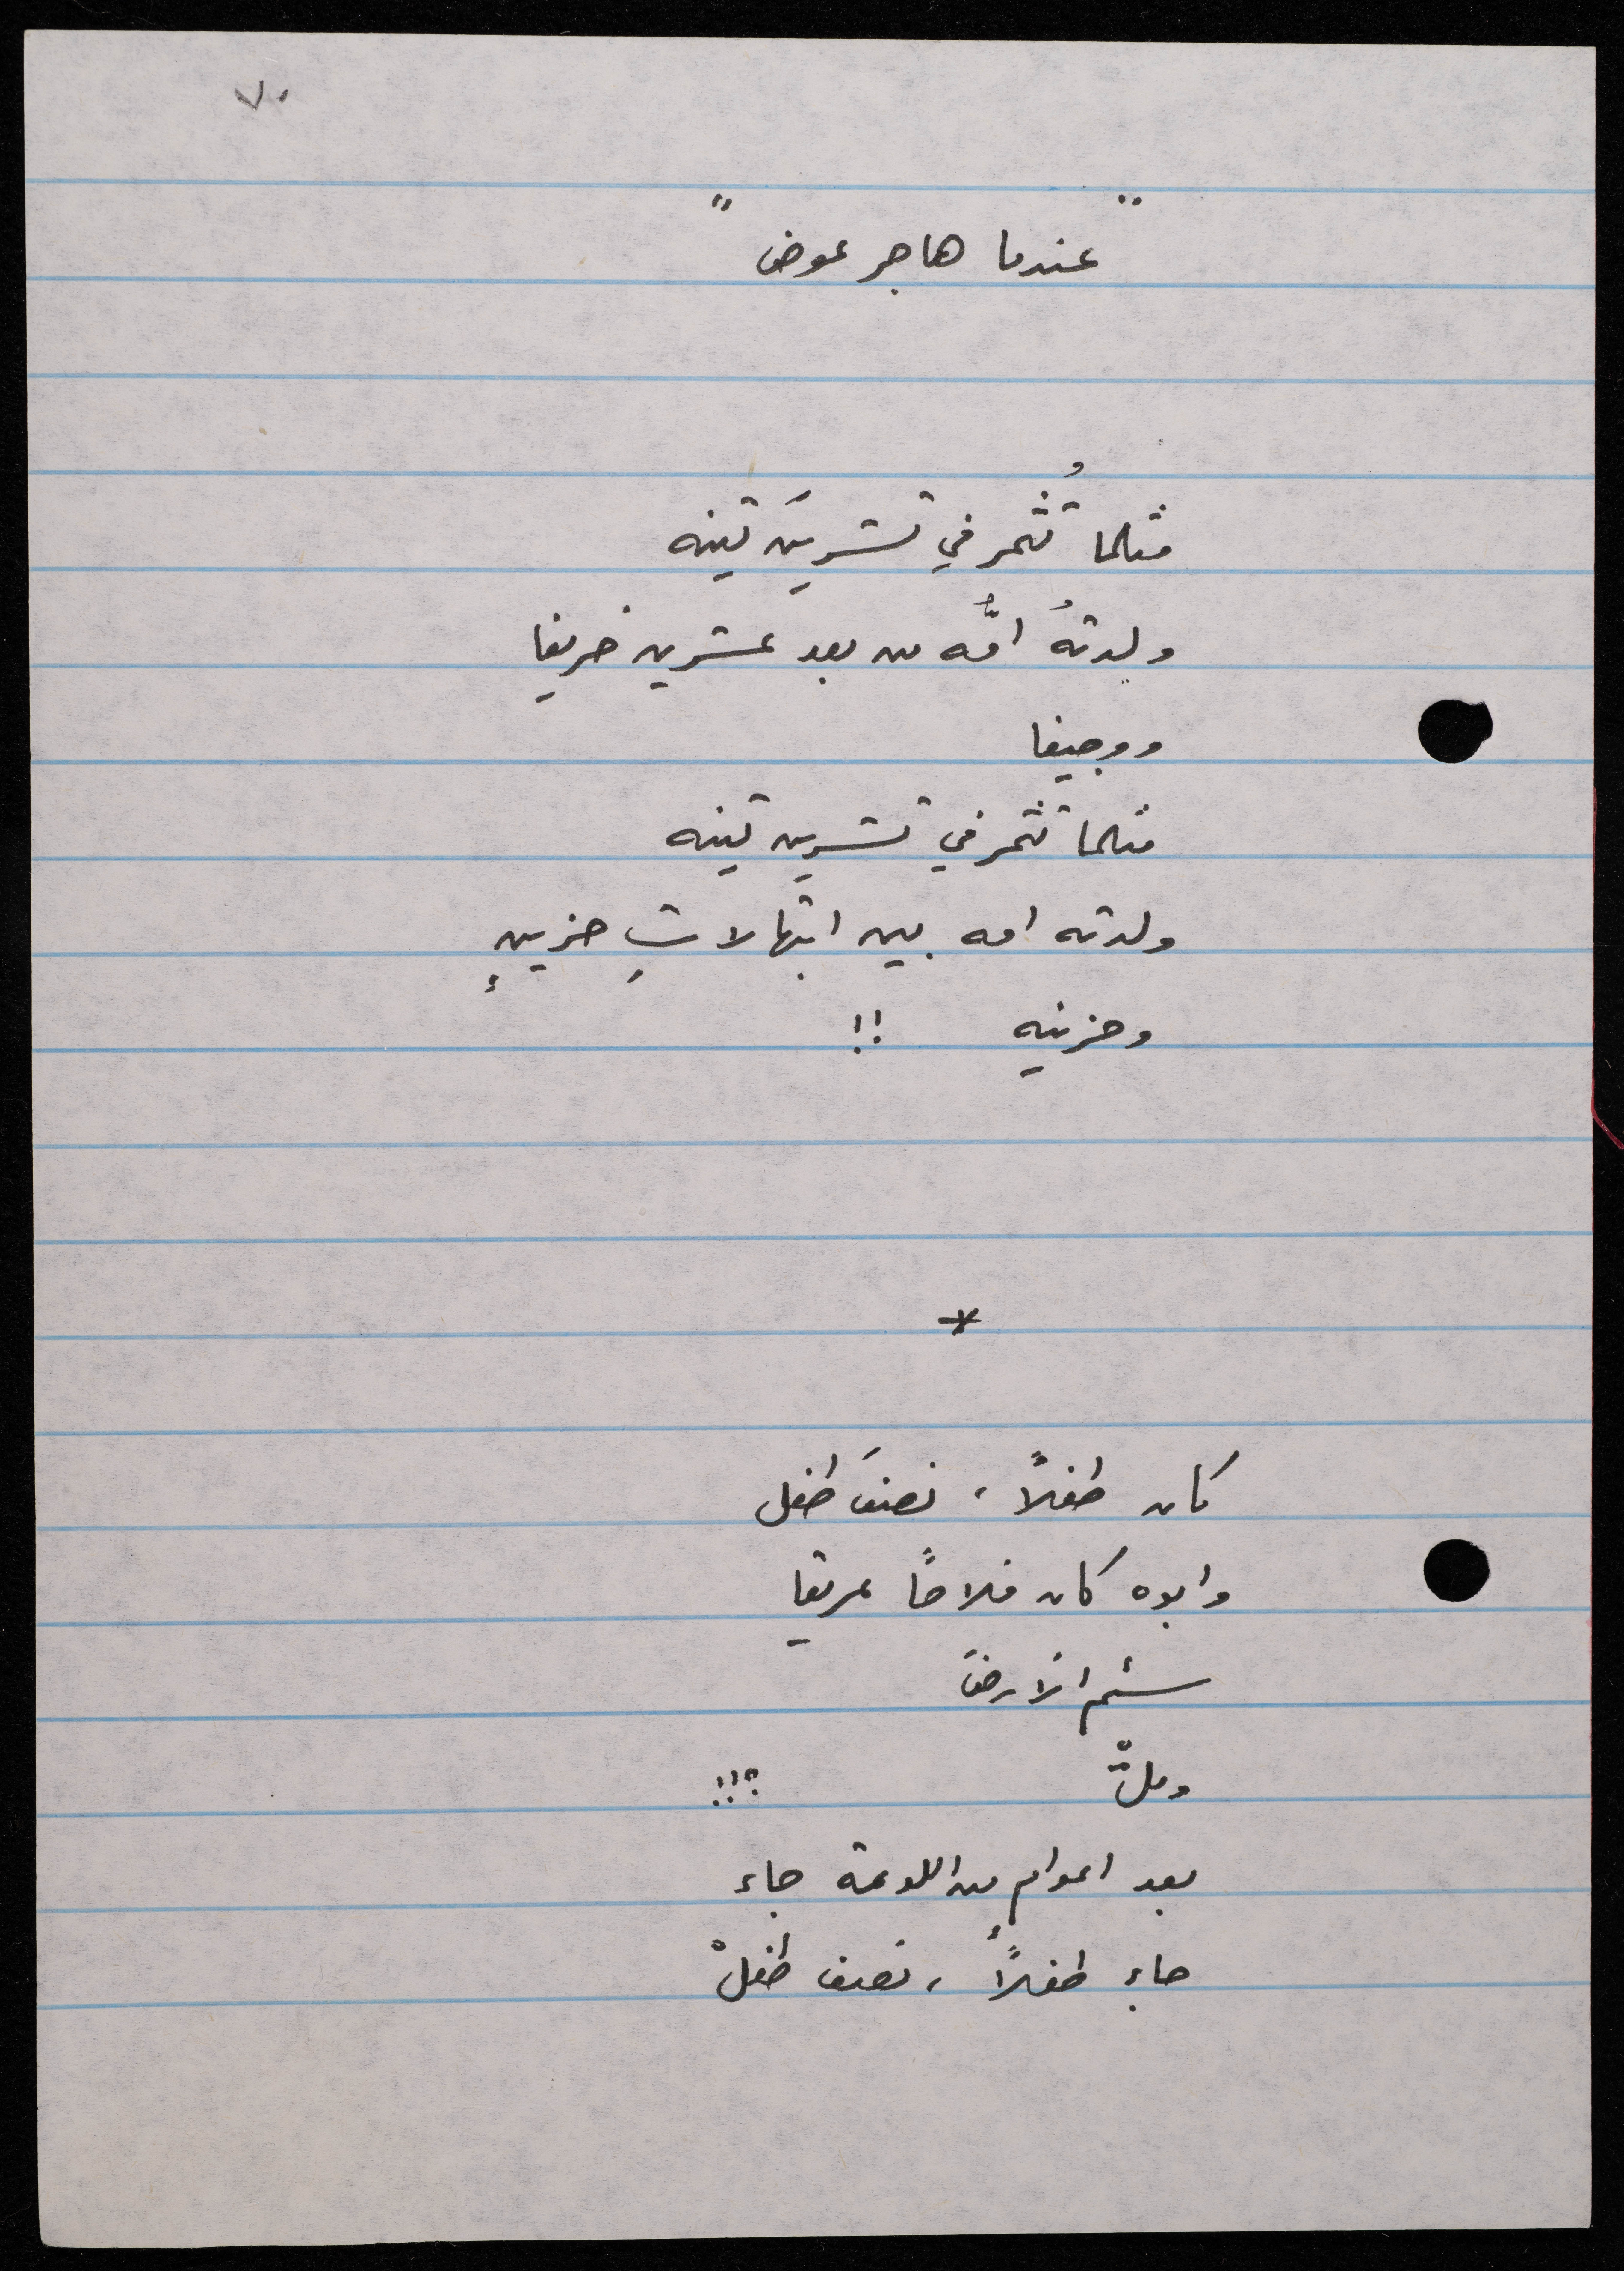 ٧٠
" عندما هاجر عوض "
مثلما تُثمر في تشرينَ تينه
ولدتهُ امُّه من بعد عشرين خريفا
ووجيفا
مثلما تثمر في تشرين تينه
ولدته امه بين ابتهالاتِ حزينٍ
وحزينه !!
*
كان طفلاً ، نصفَ طفل
وابوه كان فلاحًا عريقا
سئم الأرضَ
وملّْ ؟!!
بعد اعوام من اللوعة جاء
جاء طفلاً ، نصف طفلْ